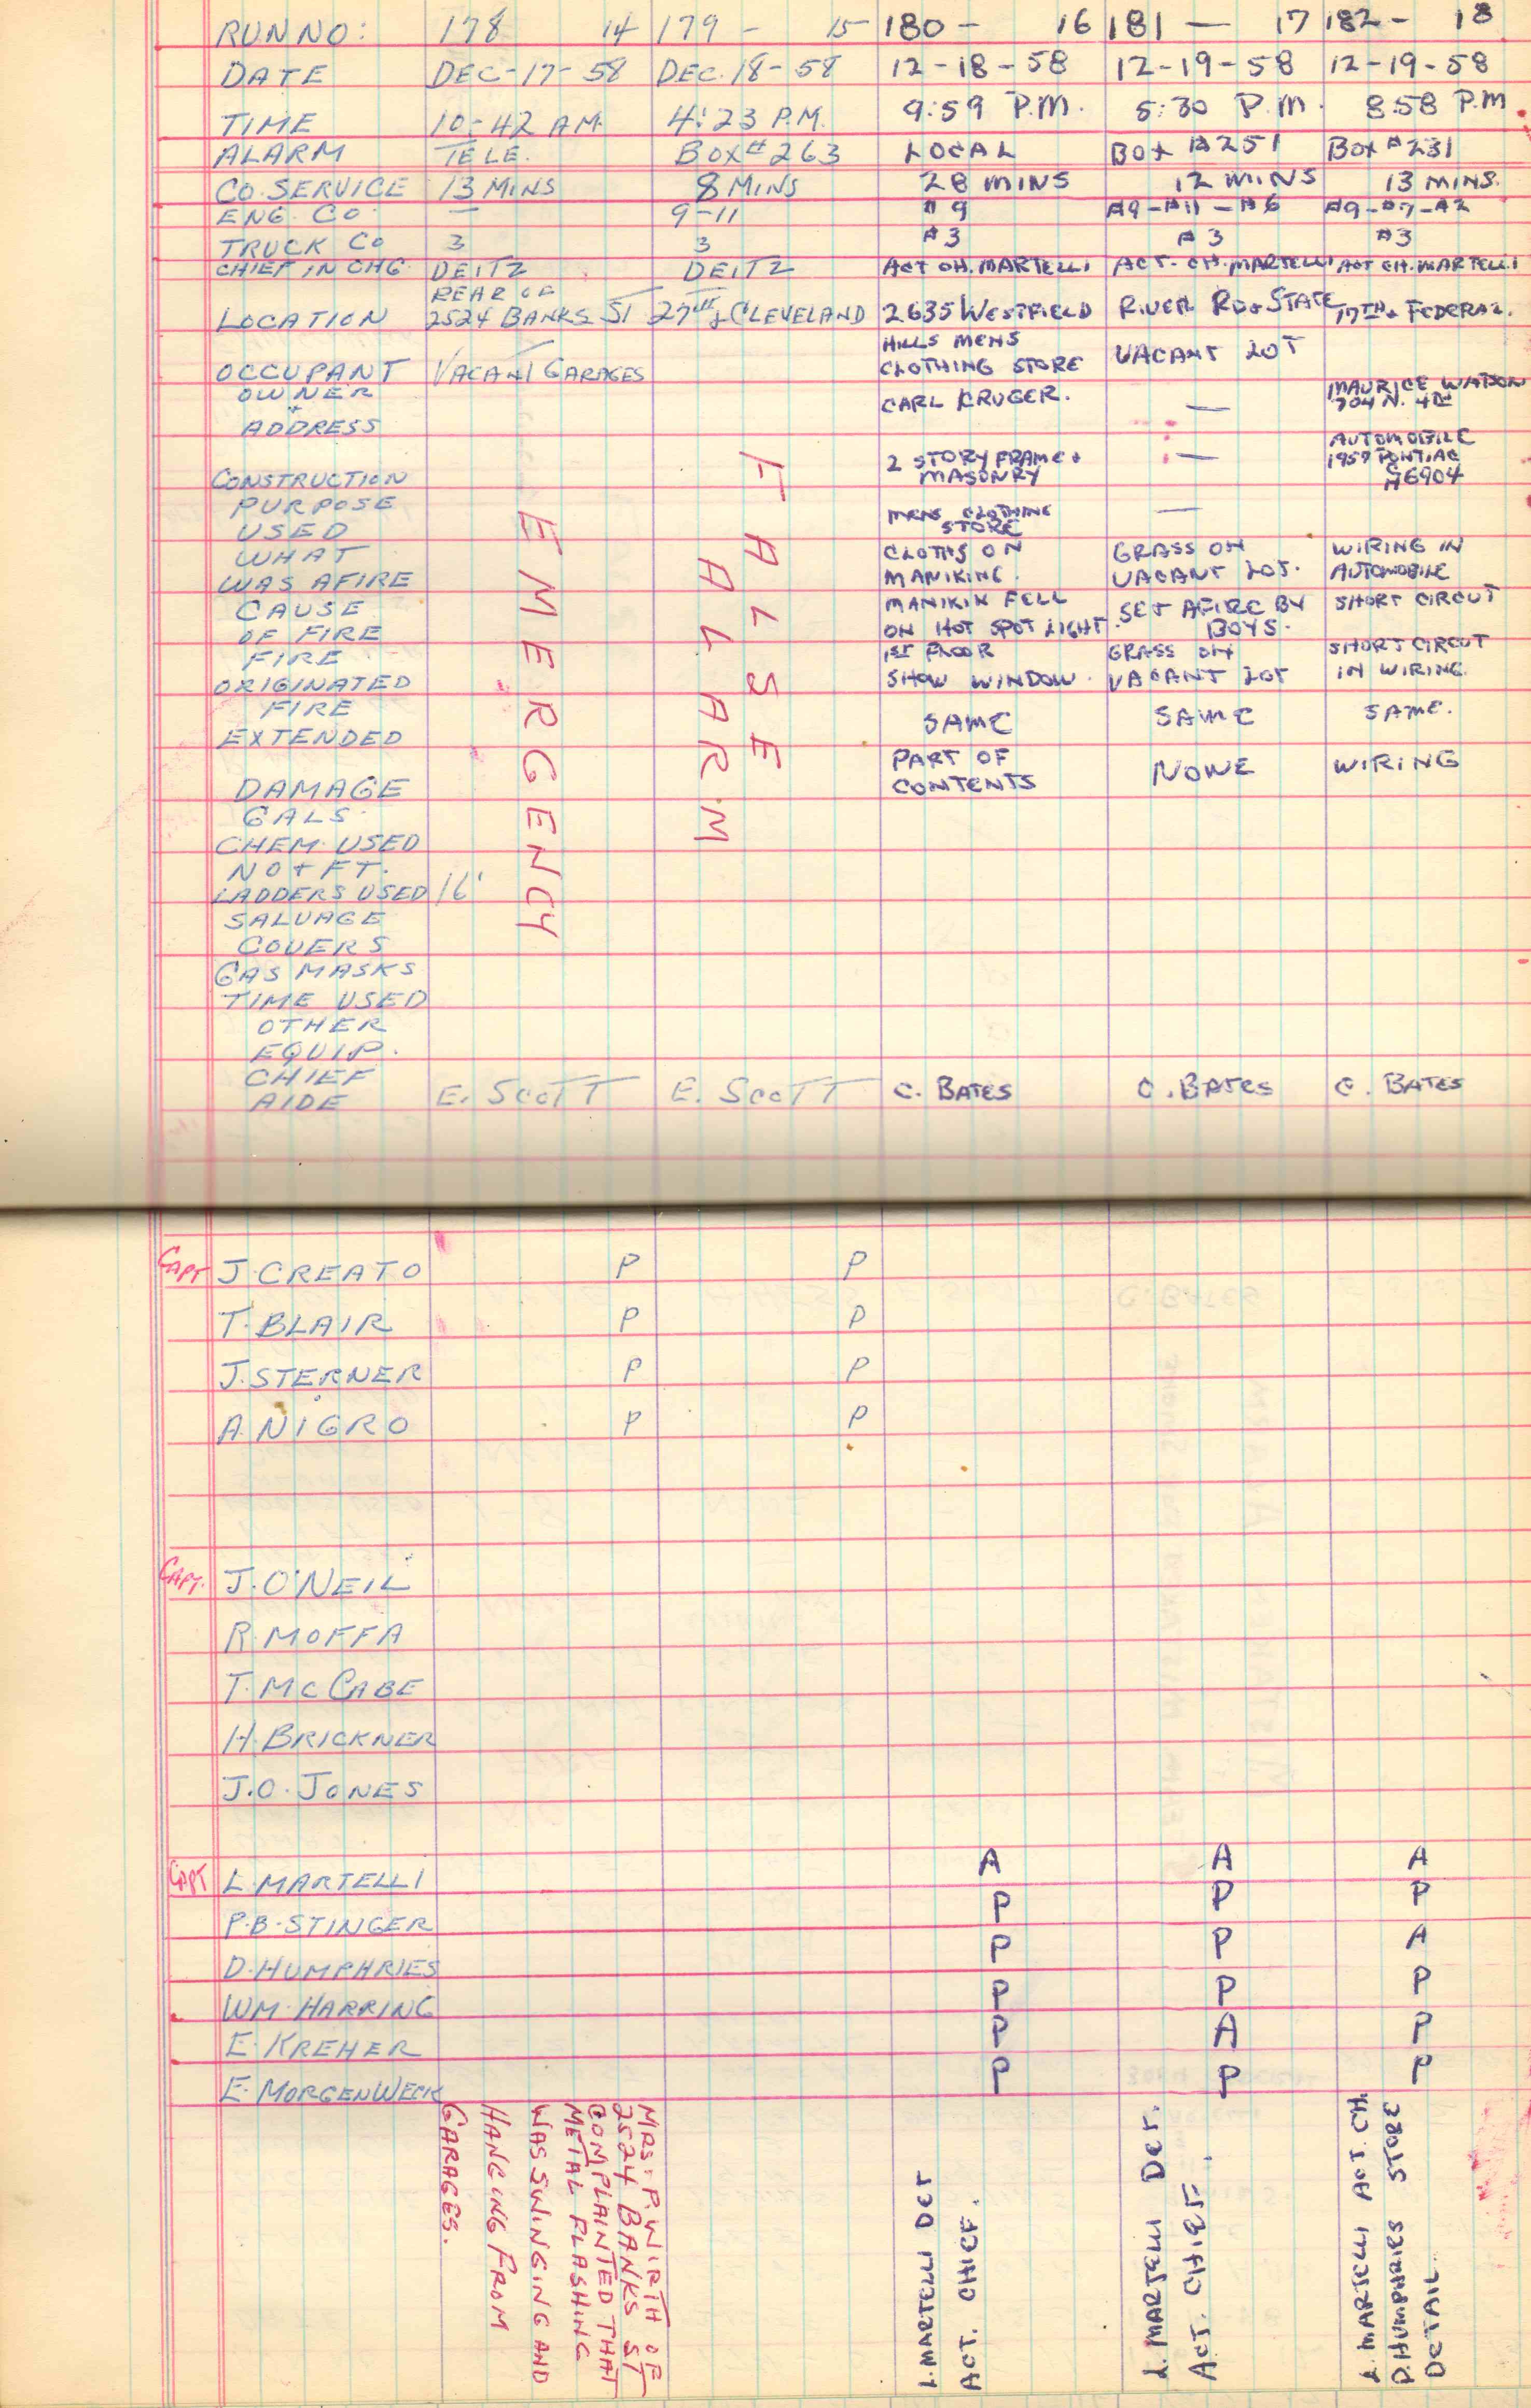 RUN NO: 178 14 179 - 15 180 - 16 181 — 17 182 - 18
DATE DEC-17-58 DEC.18-58 12-18-58 12-19-58 12-19-58
TIME 10-42 AM. 4:23 P.M. 9:59 P.M. 5:30 P.M. 858 P.M
ALARM TELE. BOX # 263 LOCAL BOX #251 BOX #231
CO. SERVICE 13 MINS 8 MINS 28 MINS 12 MINS 13 MINS.
ENG. CO. — 9-11 #9 #9-#11-#6 #9-#7-#2
TRUCK CO 3 3 #3 #3 #3
CHIEF IN CHG. DEITZ DEITZ ACT CH. MARTELLI ACT. CH. MARTELLI ACT CH. MARTELLI
REAR OF
LOCATION 2524 BANKS ST 27TH & CLEVELAND 2635 WESTFIELD RIVER RD & STATE 17TH & FEDERAL.
HILLS MENS
OCCUPANT VACANT GARAGES CLOTHING STORE VACANT LOT
OWNER CARL KRUGER. — MAURICE WATSON
+ 704 N. 4TH
ADDRESS
AUTOMOBILE
2 STORY FRAME + — 1957 PONTIAC
CONSTRUCTION MASONRY 6904
PURPOSE MENS CLOTHING —
USED STORE
WHAT CLOTHS ON GRASS ON WIRING IN
WAS AFIRE MANIKING. VACANT LOT. AUTOMOBILE
CAUSE MANIKIN FELL SET AFIRE BY SHORT CIRCUT
OF FIRE ON HOT SPOT LIGHT. BOYS.
FIRE 1ST FLOOR GRASS ON SHORT CIRCUT
ORIGINATED SHOW WINDOW. VACANT LOT IN WIRING.
FIRE
EXTENDED SAME SAME SAME.
PART OF
DAMAGE CONTENTS NONE WIRING
GALS.
CHEM. USED
NO + FT.
LADDERS USED 16'
SALVAGE
COVERS
GAS MASKS
TIME USED
OTHER
EQUIP.
CHIEF
AIDE E. SCOTT E. SCOTT C. BATES C. BATES C. BATES
EMERGENCY
FALSE
ALARM
CAPT J. CREATO P P
T. BLAIR P P
J. STERNER P P
A. NIGRO P P
CAPT. J. O'NEIL
R. MOFFA
T. MCCABE
H. BRICKNER
J.O. JONES
CAPT L. MARTELLI A A A
P.B. STINGER P P P
D. HUMPHRIES P P A
WM. HARRING P P P
E. KREHER P A P
E. MORGENWECK P P P
MRS. P. WIRTH OF
2524 BANKS ST
COMPLAINTED THAT
METAL FLASHING
WAS SWINGING AND
HANGING FROM
GARAGES.
L. MARTELLI DET
ACT. CHIEF.
L. MARTELLI DET.
ACT. CHIEF.
L. MARTELLI ACT. CH.
D. HUMPHRIES STORE
DETAIL.